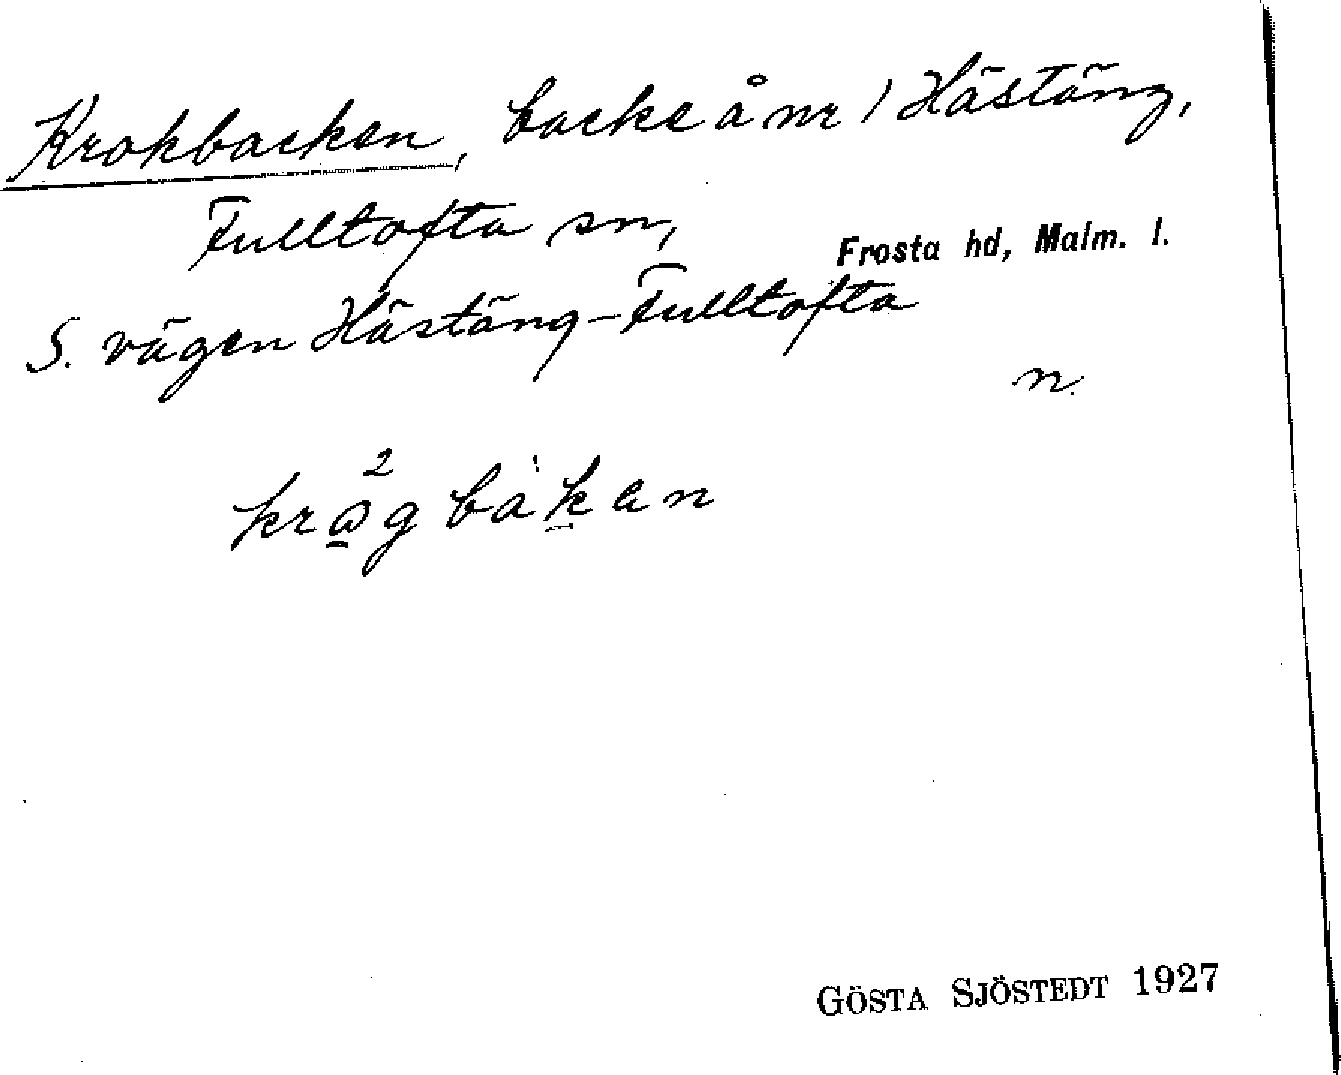 Krokbacken, backe å nr 1 Hästäng,
Fulltofta sn,
Frosta hd, Malm. l.
S. vägen Hästäng-Fulltofta
n.
GÖSTA SJÖSTEDT 1927